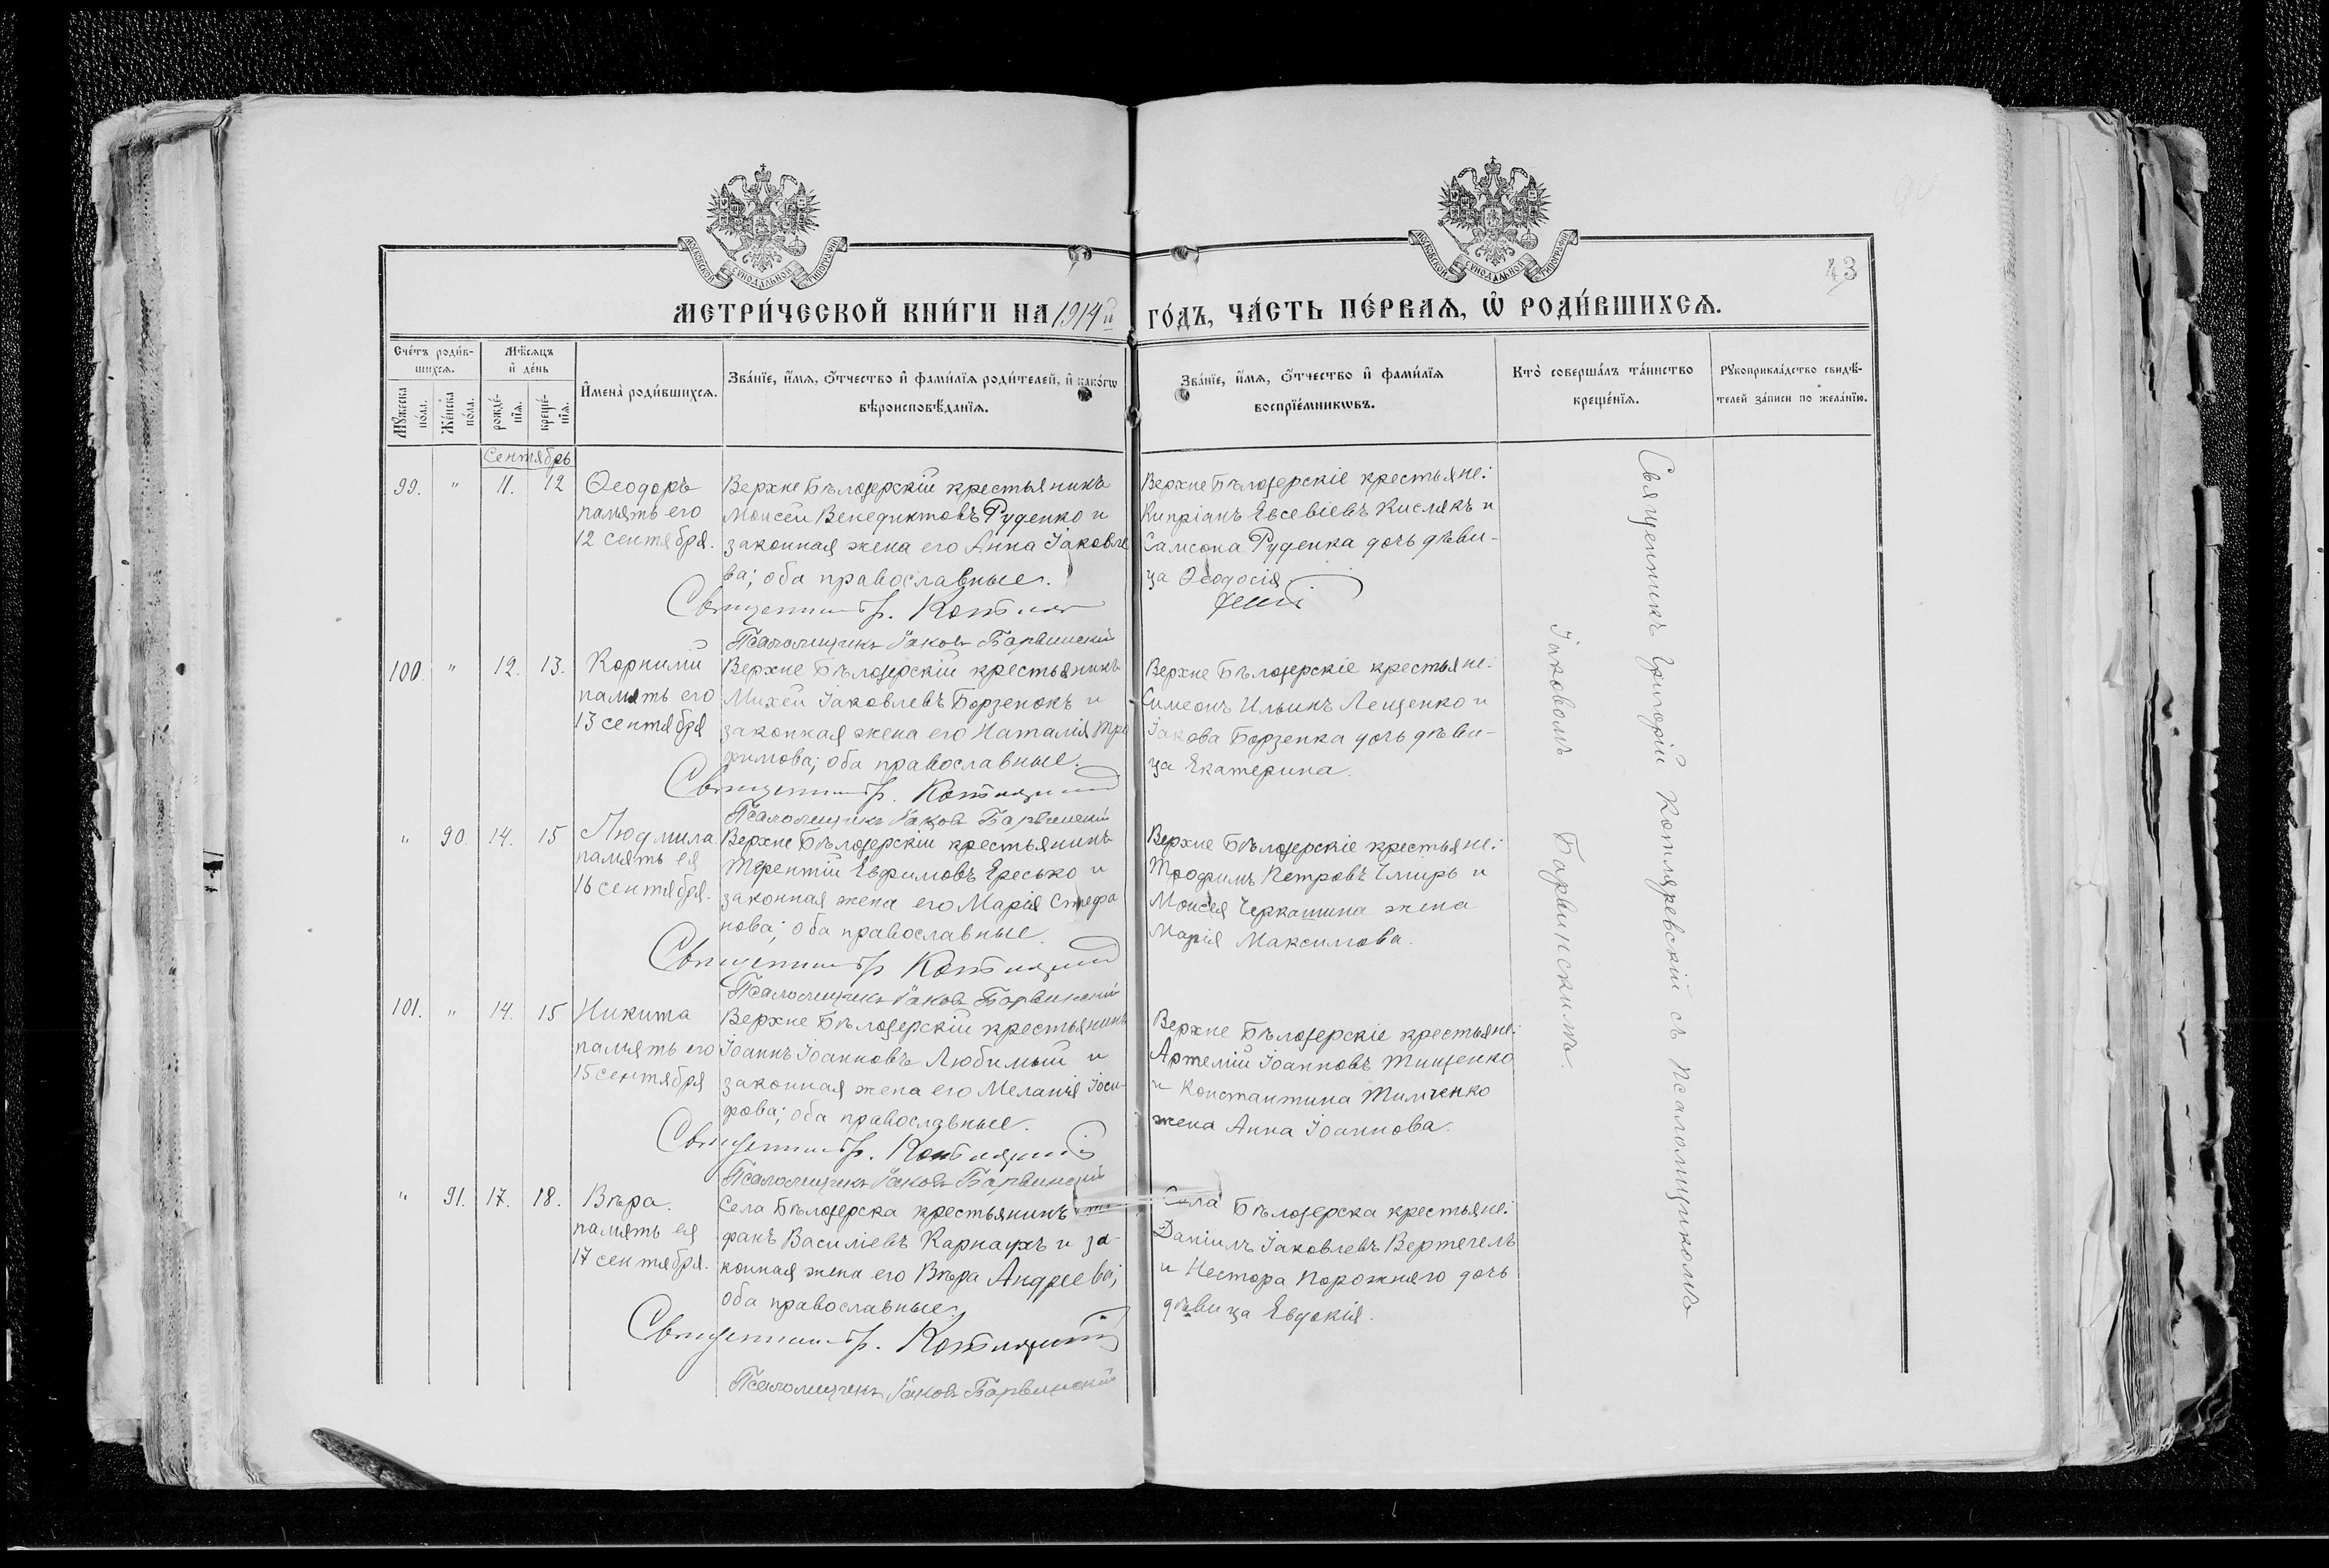 43
МОСКОВСКОЙ СѴНОДАЛЬНОЙ ТИПОГРАФІИ
МОСКОВСКОЙ СѴНОДАЛЬНОЙ ТИПОГРАФІИ
МЕТРИ́ЧЕСКОЙ КНИ́ГИ НА 1914й ГО́ДЪ, ЧА́СТЬ ПЕ́РВАѦ, Ѽ РОДИ́ВШИХСѦ.
Сче́тъ роди́в-
шихсѧ.
Мꙋ́жеска по́ла.
Же́нска по́ла.
Мѣ́сѧцъ
и҆ де́нь
рожде́-нїѧ.
креще́-нїѧ.
И҆мена̀ роди́вшихсѧ.
Зва́нїе, и҆́мѧ, ѻ҆́тчество и҆ фами́лїѧ роди́телей, и҆ како́гѡ
вѣроисповѣ́данїѧ.
Зва́нїе, и҆́мѧ, ѻ҆́тчество и҆ фами́лїѧ
воспрїе́мникѡвъ.
Кто̀ соверша́лъ та́инство
креще́нїѧ.
Рꙋкоприкла́дство свидѣ́-
телей за́писи по жела́нїю.
Сентябрь
99. " 11. 12
Ѳеодоръ
память его
12 сентября.
Верхне Бѣлозерскій крестьянинъ
Моисей Венедиктовъ Руденко и
законная жена его Анна Іаковле
ва; оба православные.
Священникъ Гр.
Псаломщикъ Іаковъ Барвинскій
Верхне Бѣлозерскіе крестьяне:
Кипріанъ Евсевіевъ Кислякъ и
Самсона Руденка дочь дѣви-
ца Ѳеодосія
100. " 12. 13.
Корнилій
память его
13 сентября
Верхне Бѣлозерскій крестьянинъ
Михей Іаковлевъ Борзенокъ и
законная жена его Наталія Тро
фимова; оба православные.
Священникъ Гр.
Псаломщикъ Іаковъ Барвинскій
Верхне Бѣлозерскіе крестьяне:
Симеонъ Ильинъ Лещенко и
Іакова Борзенка дочь дѣви-
ца Екатерина.
" 90. 14. 15
Людмила
память ея
16 сентября.
Верхне Бѣлозерскій крестьянинъ
Терентій Евфимовъ Ересько и
законная жена его Марія Стефа
нова; оба православные.
Священникъ Гр.
Псаломщикъ Іаковъ Барвинскій
Верхне Бѣлозерскіе крестьяне:
Трофимъ Петровъ и
Моисея Черкашина жена
Марія Максимова.
101. " 14. 15
Никита
память его
15 сентября
Верхне Бѣлозерскій крестьянинъ
Іоаннъ Іоанновъ Любимый и
законная жена его Меланія Іоси-
фова; оба православные.
Священникъ Гр.
Псаломщикъ Іаковъ Барвинскій
Верхне Бѣлозерскіе крестьяне:
Артемій Іоанновъ Тищенко
и Константина Тимченко
жена Анна Іоаннова.
" 91. 17. 18.
Вѣра.
память ея
17 сентября.
Села Бѣлозерска крестьянинъ
фанъ Василіевъ Карнаухъ и за-
конная жена его Вѣра Андреева;
оба православные.
Священникъ Гр.
Псаломщикъ Іаковъ Барвинскій
Села Бѣлозерска крестьяне:
Даніилъ Іаковлевъ Вертегелъ
и Нестора Порожняго дочь
дѣвица Евдокія.
Священникъ Григорій Котляревскій съ псаломщикомъ
Іаковомъ Барвинскимъ.